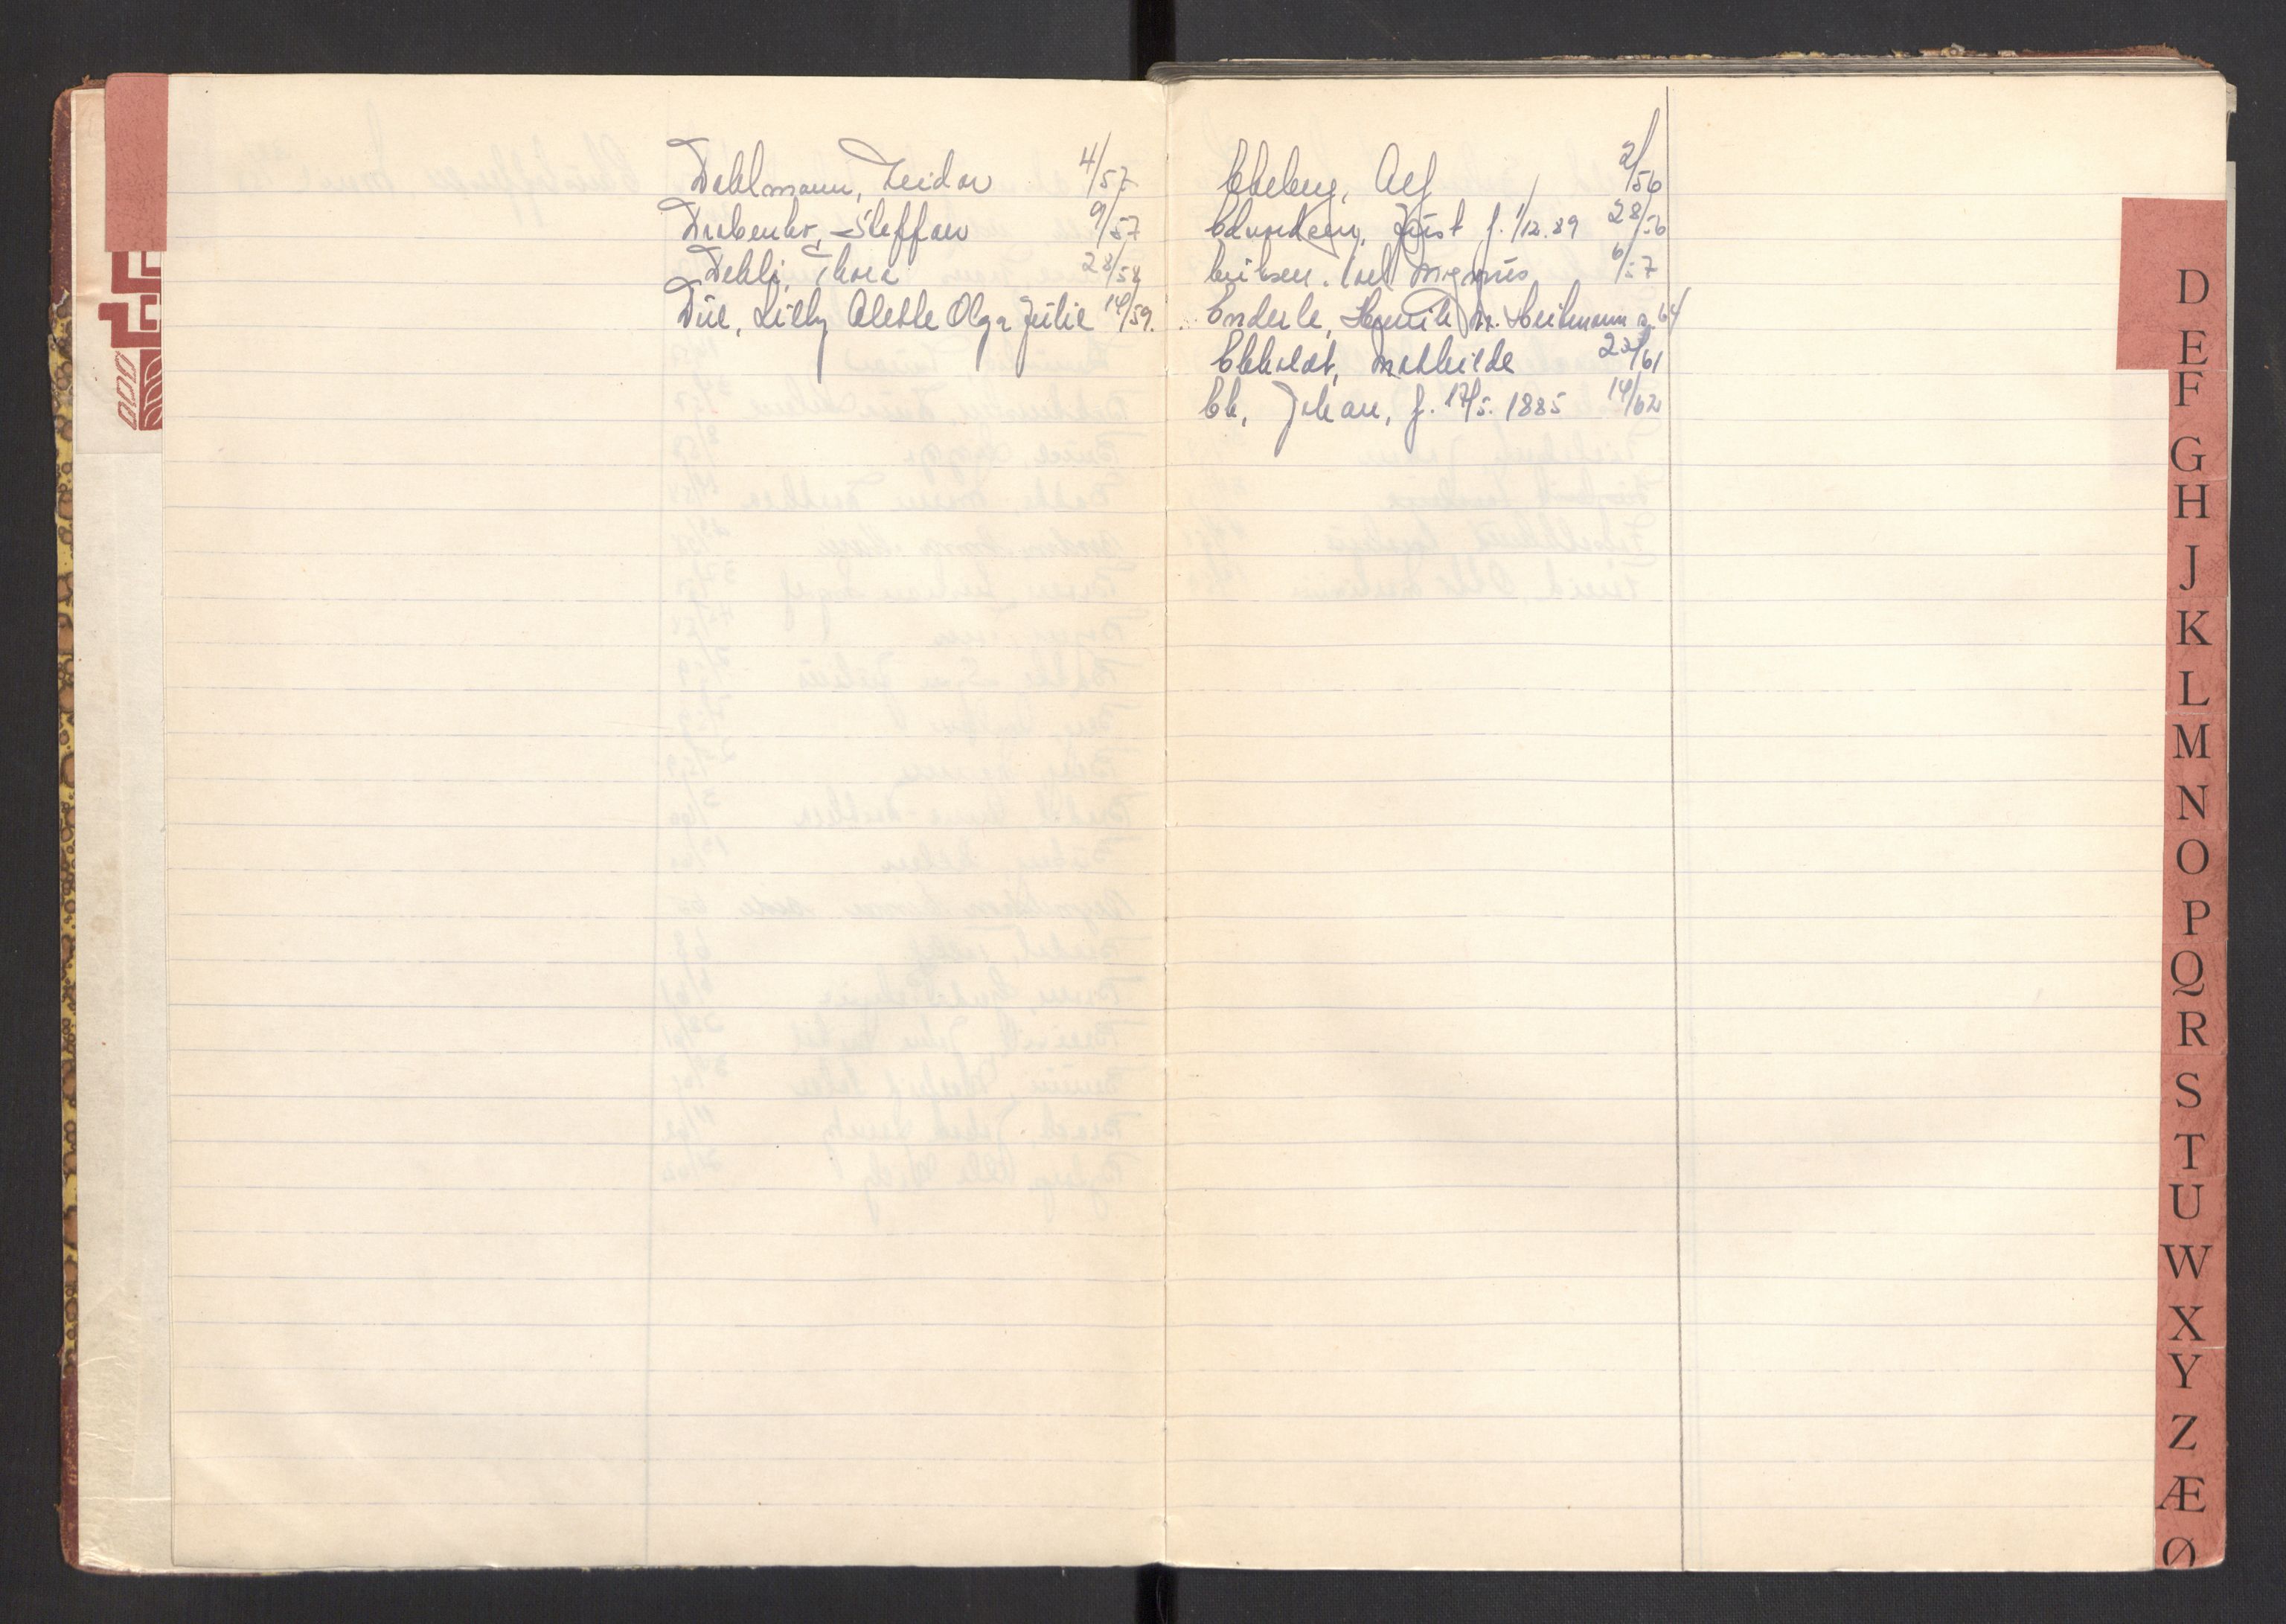 Dahlmann, Reidar 4/57
Drabenko, Steffan 9/57
Dehli, Thora 28/58
Düe, Lilly Alethe Olga Julie 14/59.
Ekeberg, Alf 2/56
Edvardsen, Just f. 1/12.89 28/56
Eriksen, Carl Magnus 6/57
Enderle, Henrik M. Heitmann 64
Ekholdt, Mathilde 22/61
Ek, Johan, f. 17/5. 1885 14/62
D
E
F
G
H
J
K
L
M
N
O
P
Q
R
S
T
U
W
X
Y
Z
Æ
Ø